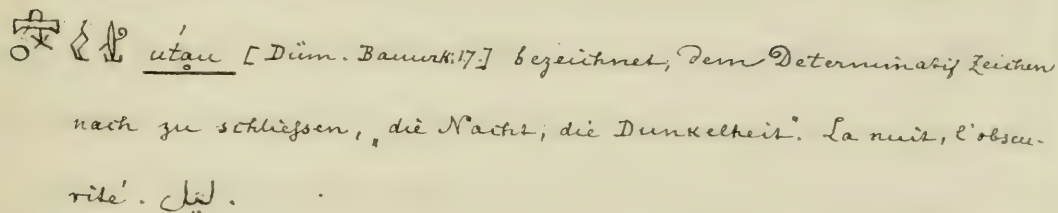 utau [Düm. Bauurk. 17.] bezeichnet, dem Determinativ Zeichen
nach zu schliessen, „die Nacht, die Dunkelheit“. La nuit, l'obscu-
rité. ليل.